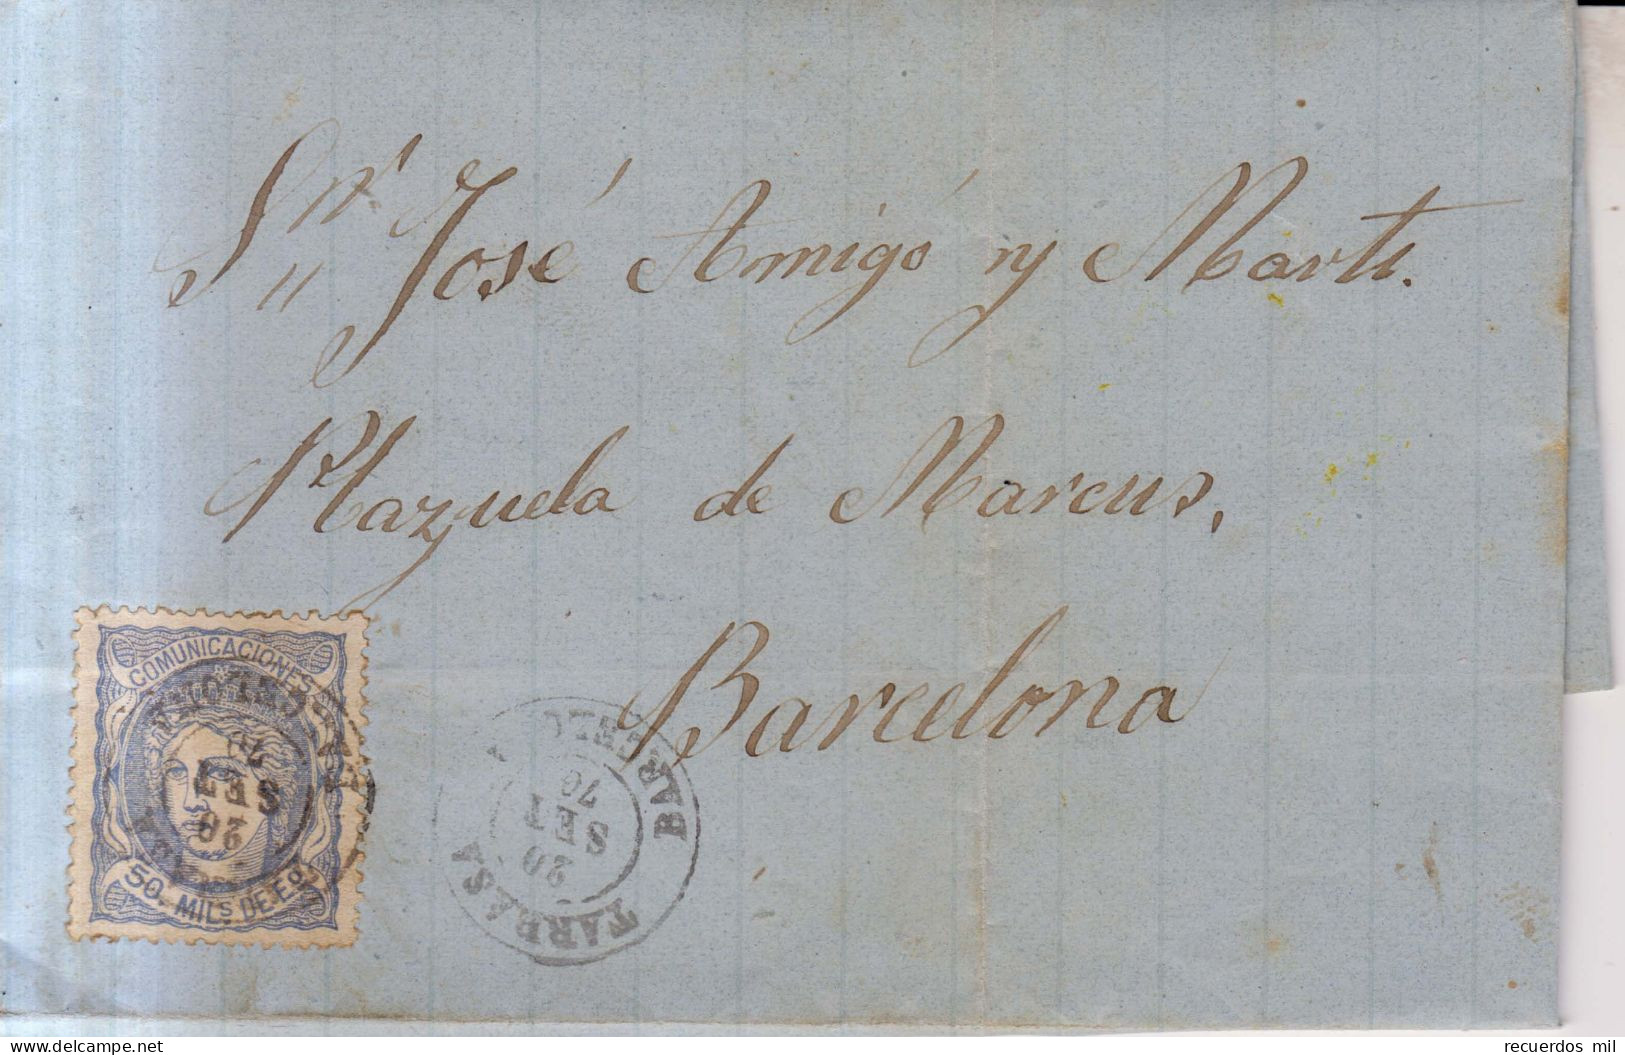 Sr. José Amigó y Marti.
Plazuela de Marcus,
Barcelona
COMUNICACIONES
50. MILS DE Eo.
20
SET
70
TARRASA
20
SET
70
BARCELONA
delcampe.net
recuerdos mil